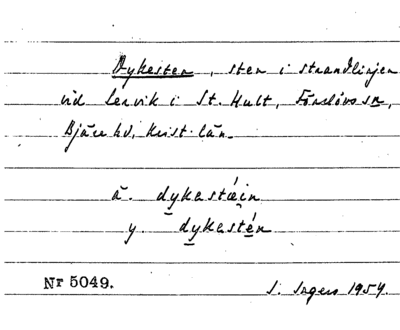 Dykesten, sten i strandlinjen
vid Lervik i St. Hult, Förslövs sn,
Bjäre hd, Krist. län.
ä. dykastæin
y. dykastén
Nr 5049.
S. 1954.